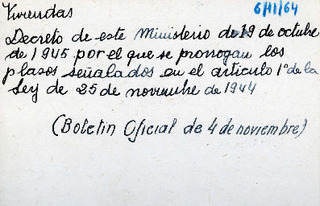 Viviendas
6/11/64
Decreto de este Ministerio de 19 de octubre
de 1945 por el que se prorrogan los
plazos señalados en el articulo 1º de la
Ley de 25 de noviembre de 1944
(Boletin Oficial de 4 de noviembre)